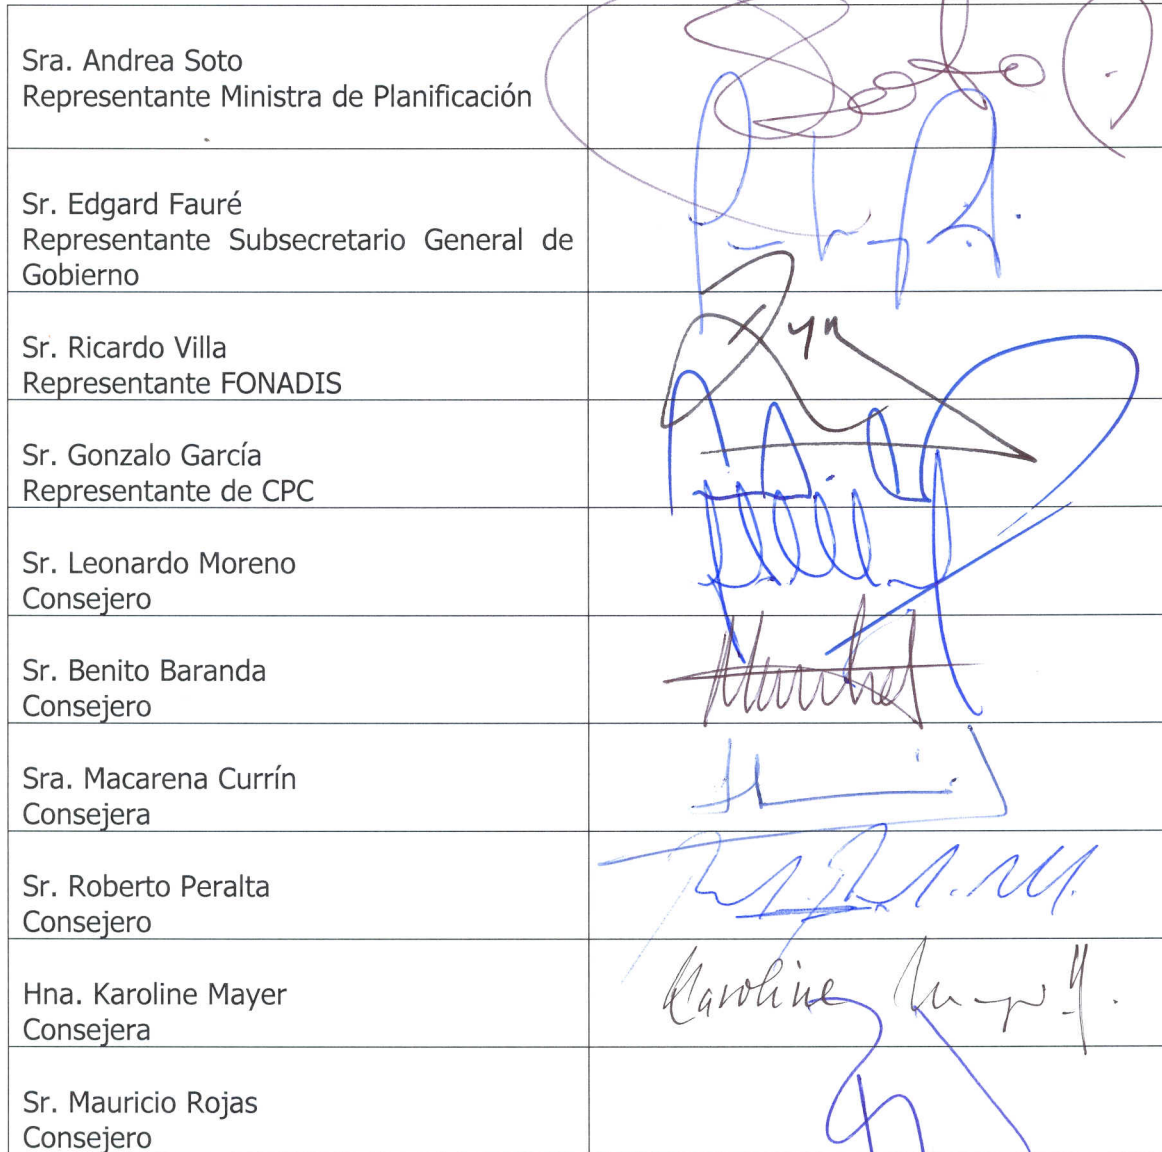 Sra. Andrea Soto
Representante Ministra de Planificación
Soto
Sr. Edgard Fauré
Representante Subsecretario General de
Gobierno
Sr. Ricardo Villa
Representante FONADIS
Sr. Gonzalo García
Representante de CPC
Sr. Leonardo Moreno
Consejero
Sr. Benito Baranda
Consejero
Sra. Macarena Currín
Consejera
Sr. Roberto Peralta
Consejero
Hna. Karoline Mayer
Consejera
Karoline
Sr. Mauricio Rojas
Consejero